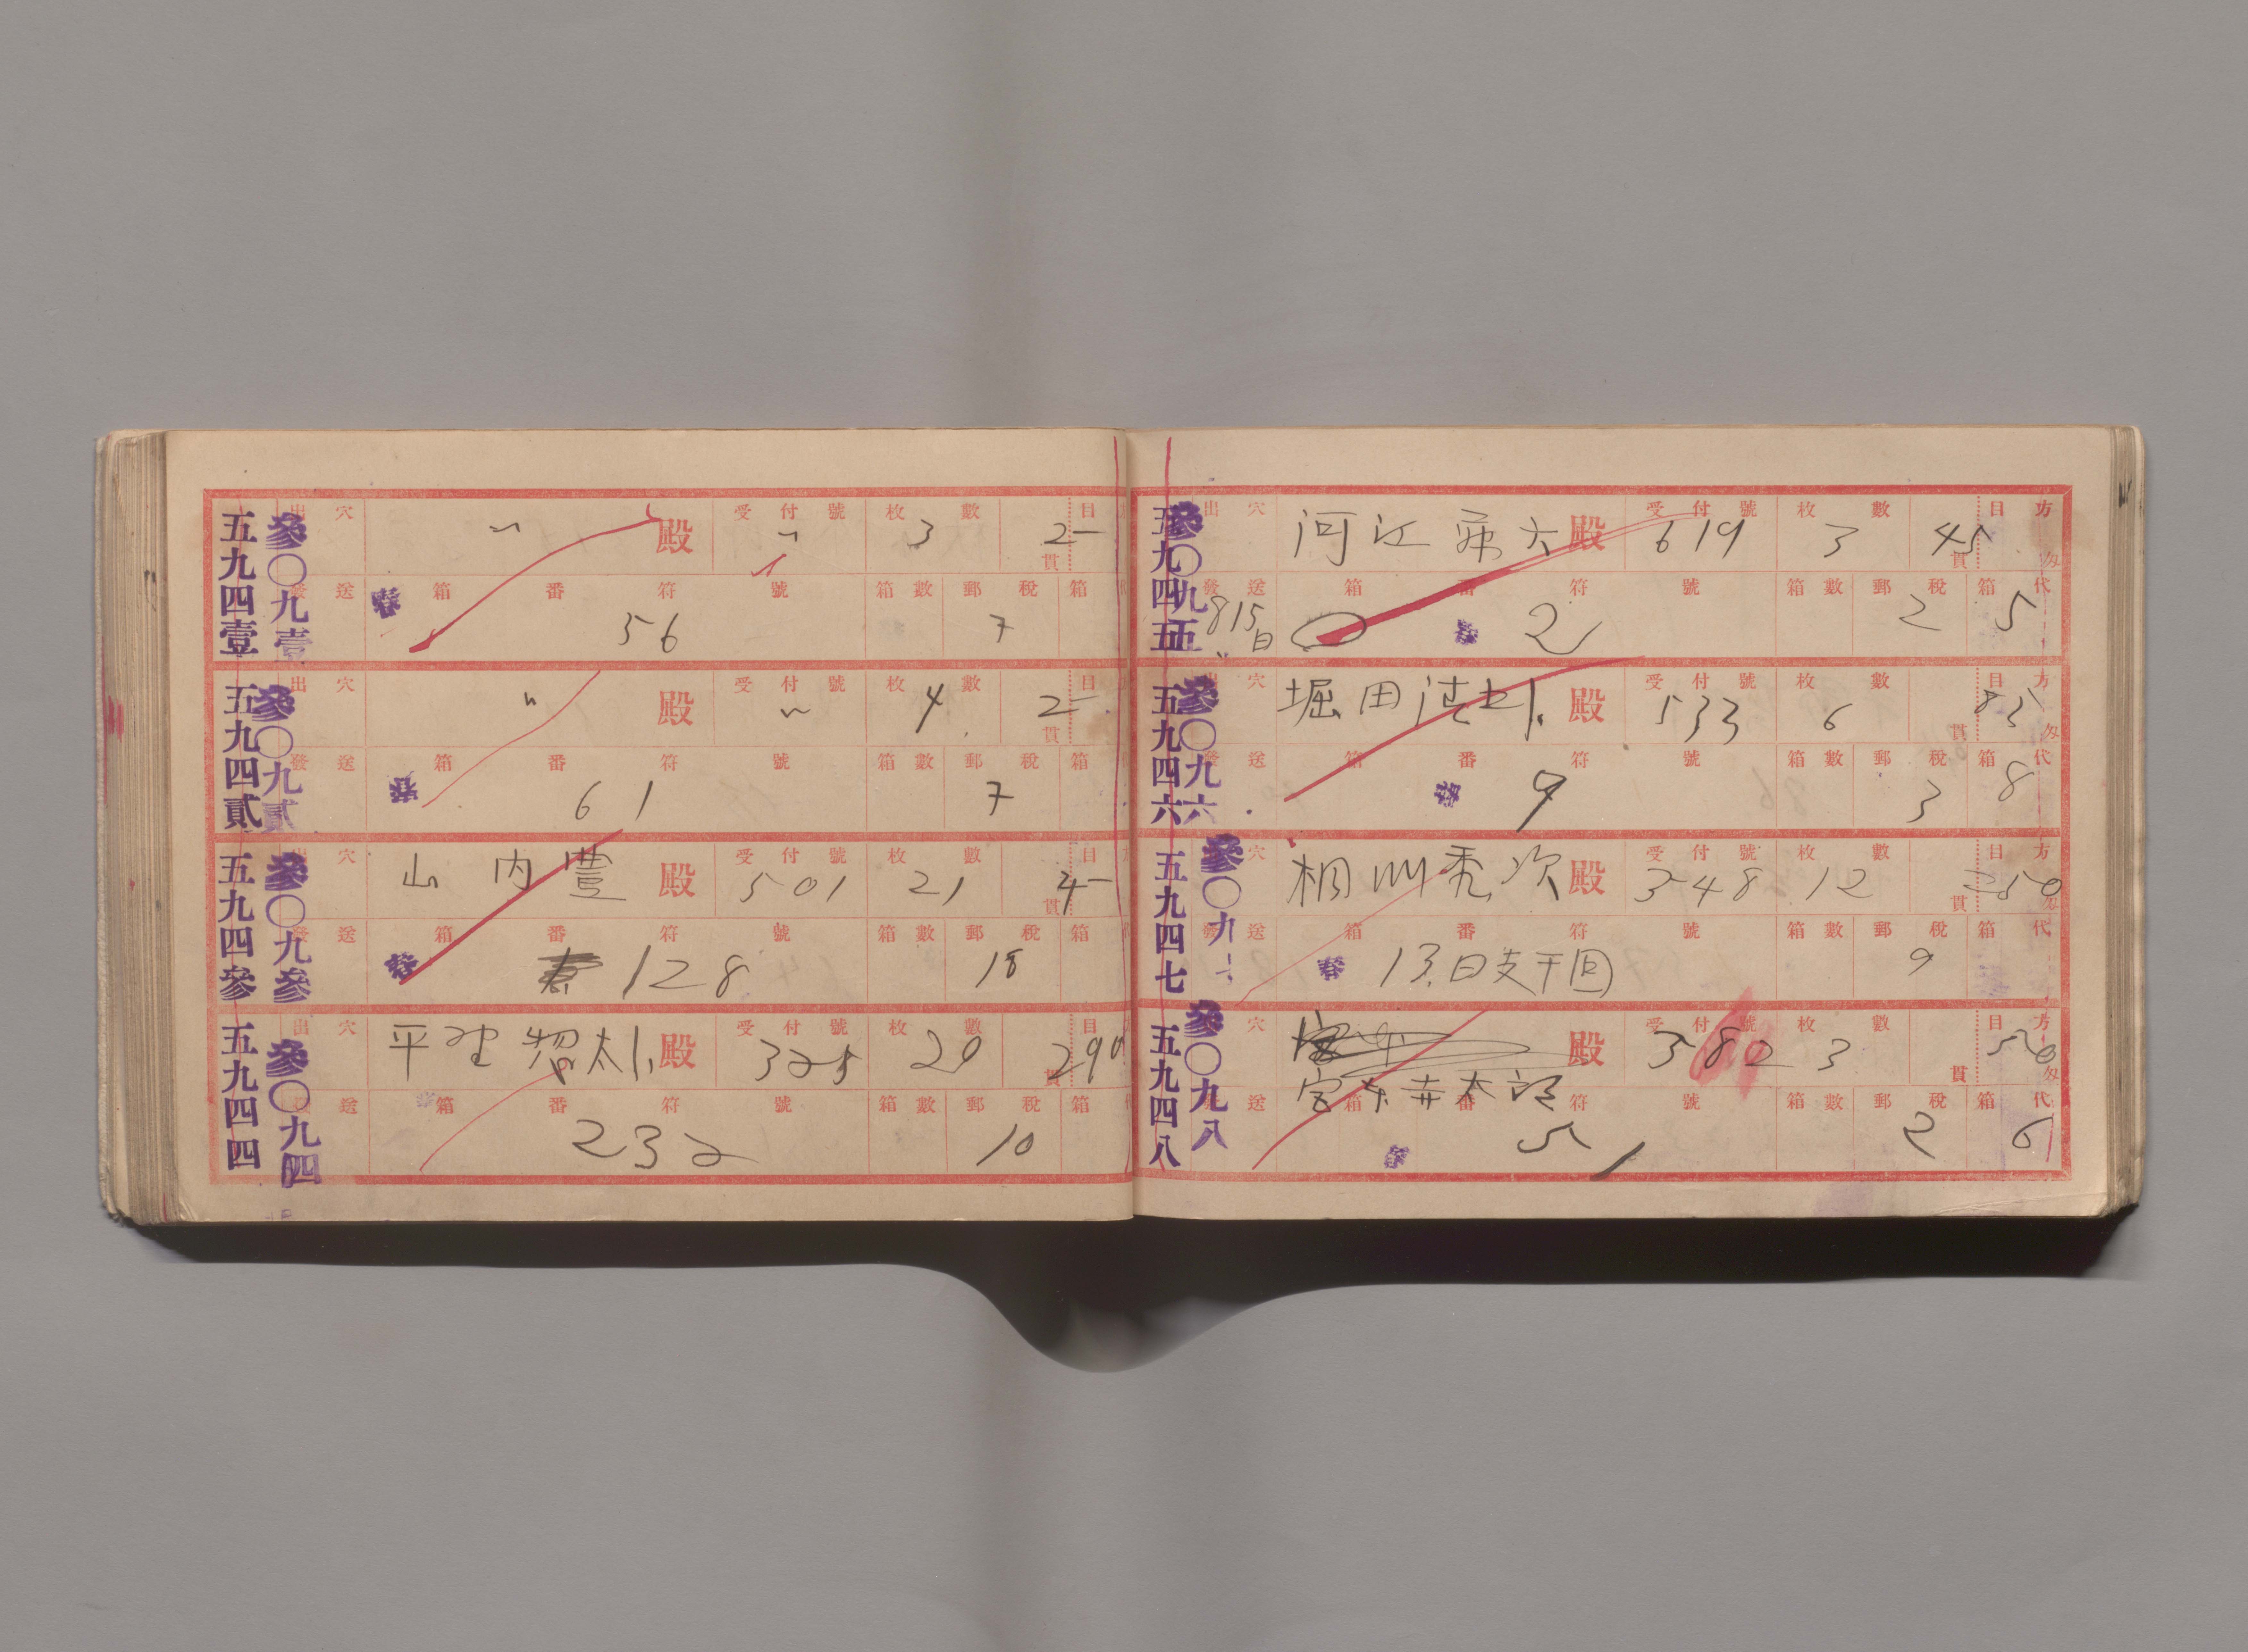 五九四壹 參〇九壹
出 穴 〃 殿 受付號 〃 枚數 3 目 2-
貫
發送 春 箱番符號 56 箱數 郵稅 7 箱
五九四貳 參〇九貳
出 穴 〃 殿 受付號 〃 枚數 4 目 2-
貫
發送 春 箱番符號 61 箱數 郵稅 7 箱
五九四參 參〇九參
出 穴 山内豊 殿 受付號 501 枚數 21 目 4-
貫
發送 春 箱番符號 128 箱數 郵稅 18 箱
五九四四 參〇九四
出 穴 平野惣太郎 殿 受付號 325 枚數 20 目 290
貫
發送 箱番符號 232 箱數 郵稅 10 箱
五九四五 參〇九五
出 穴 河江 六 殿 受付號 619 枚數 3 目方 45
貫 匁
發送 8 15日 箱番符號 春 2 箱數 郵稅 2 箱代 5
五九四六 參〇九六
出 穴 堀田 郎 殿 受付號 533 枚數 6 目方 85
貫 匁
發送 箱番符號 春 9 箱數 郵稅 3 箱代 8
五九四七 參〇九
穴 相川秀次 殿 受付號 348 枚數 12 目方 250
貫 匁
發送 箱番符號 春 13日支干回 箱數 郵稅 9 箱代
五九四八 參〇九八
穴 殿 受付號 382 枚數 3 目方 50
貫 匁
送 宮 太郎 箱番符號 春 51 箱數 郵稅 2 箱代 6